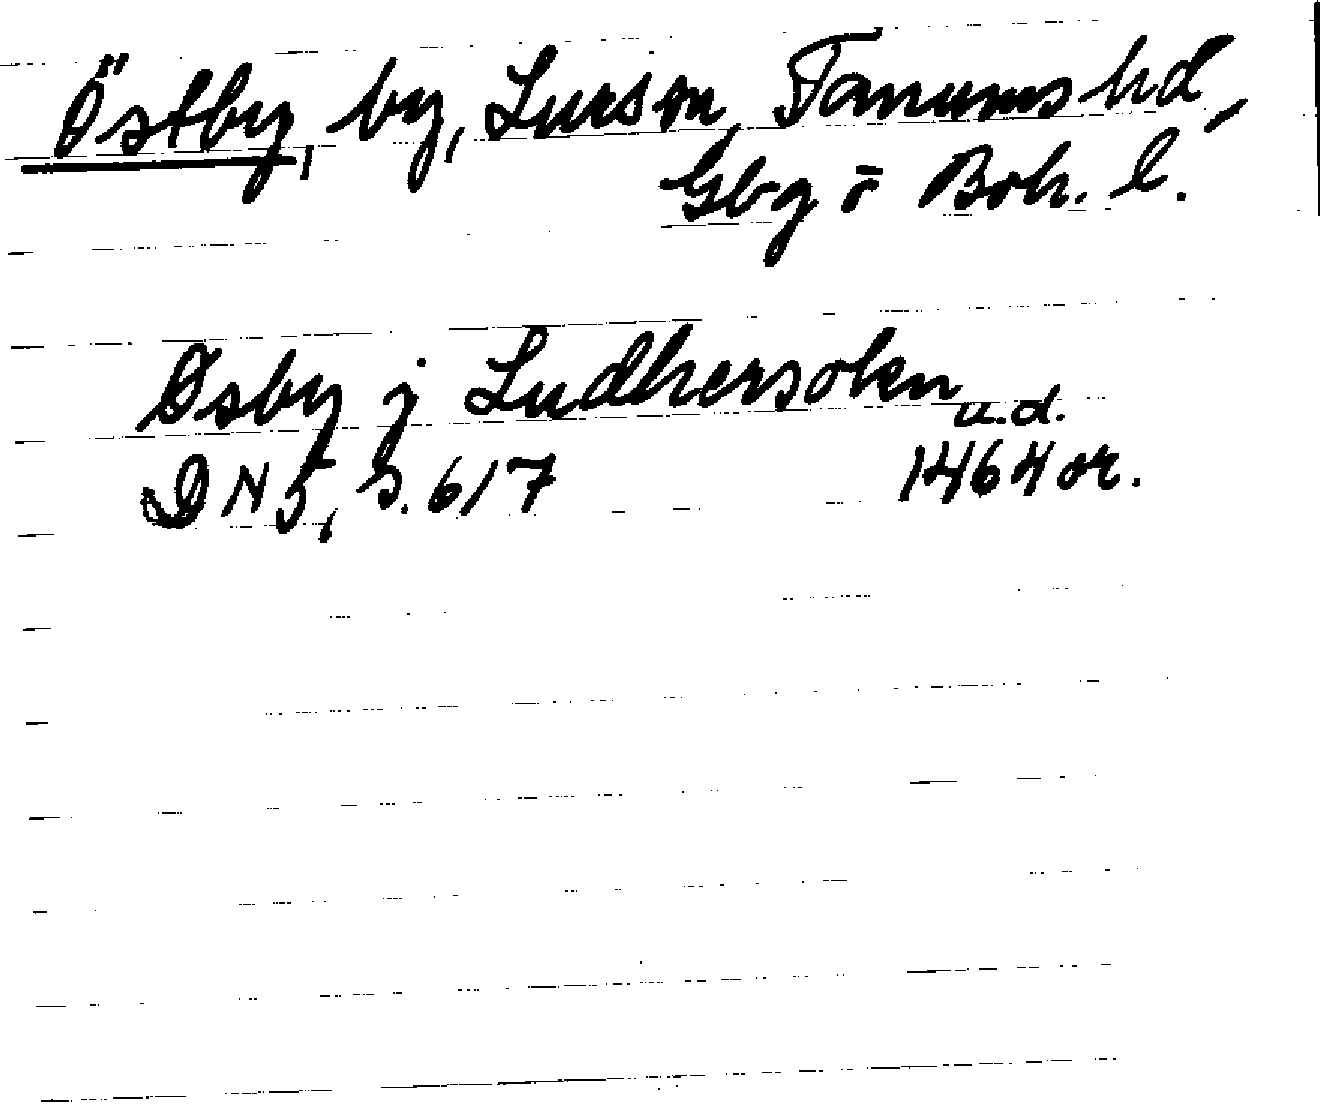 Östby, by, Lurs sn, Tanums hd,
Gbg o Boh. l.
Øsby j Ludhersokn
u.d.
DN 5, S. 617 1464 or.